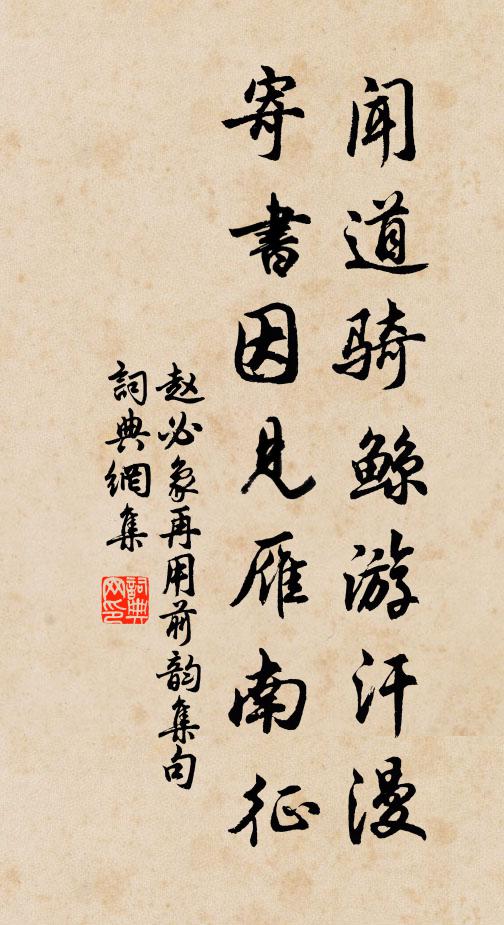 闻道骑鲸游汗漫
寄書因見雁南征
赵必象再用前韵集句
詞典網集
詞典网印